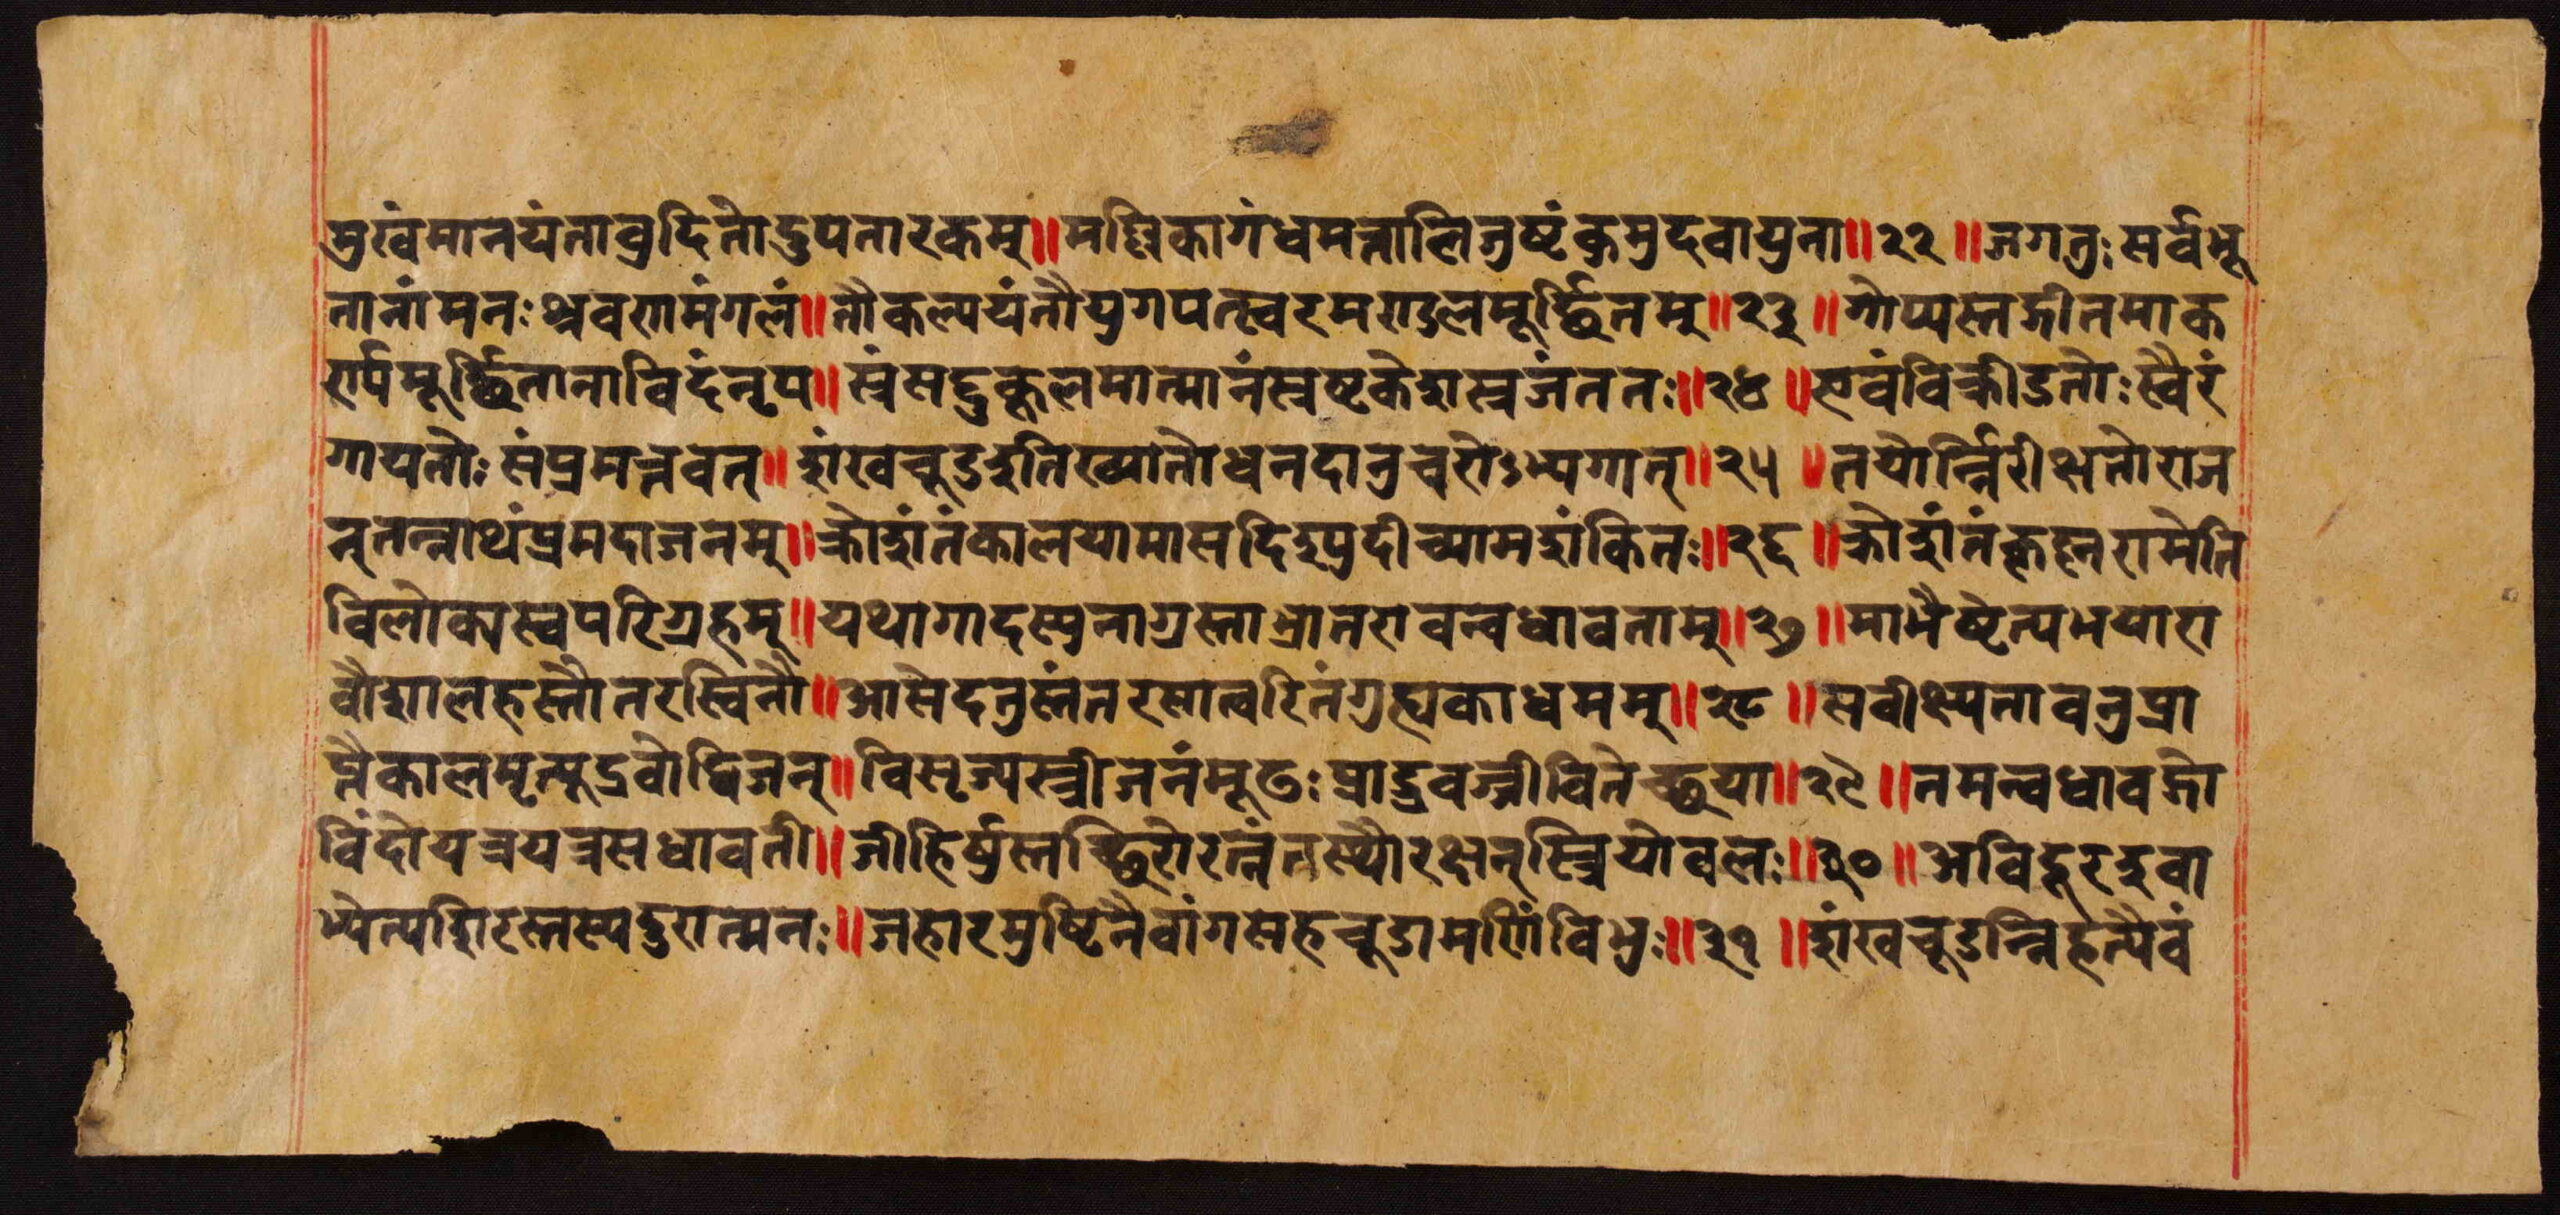 मुखंमानयंतावुदितोडुपतारकम्॥मल्लिकागंधमत्तालिजुष्टंकुमुदवायुना॥२२॥जगतुःसर्वभू
तानांमनःश्रवणमंगलं॥तौकल्पयंतौयुगपत्स्वरमण्डलमूर्छितम्॥२३॥गोप्यस्तद्गीतमाक
र्ण्यमूर्छितानाविदंनृप॥स्रंसद्दुकूलमात्मानंस्रष्टकेशस्रजंततः॥२४॥एवंविक्रीडतोःस्वैरं
गायतोःसंप्रमत्तवत्॥शंखचूडइतिख्यातोधनदानुचरोऽभ्यगात्॥२५॥तयोर्न्निरीक्षतोराज
न्तन्नाथंप्रमदाजनम्॥क्रोशंतंकालयामासदिश्युदीच्यामशंकितः॥२६॥क्रोशंतंकृष्णरामेति
विलोक्यस्वपरिग्रहम्॥यथागादस्युनाग्रस्ताभ्रातरावन्वधावताम्॥२७॥माभैष्टेत्यभयारा
वौशालहस्तौतरस्विनौ॥आसेदतुस्तंतरसात्वरितंगुह्यकाधमम्॥२८॥सवीक्ष्यतावनुप्रा
प्तौकालमृत्यूइवोद्विजन्॥विसृज्यस्त्रीजनंमूढःप्राद्रवज्जीवितेच्छया॥२९॥तमन्वधावद्गो
विंदोयत्रयत्रसधावती॥जीहिर्षुस्तच्छिरोरत्नंतस्थौरक्षन्स्त्रियोवलः॥३०॥अविदूरइवा
भ्येत्यशिरस्तस्यदुरात्मनः॥जहारमुष्टिनैवांगसहचूडामणिंविभुः॥३१॥शंखचूडन्निहत्यैवं